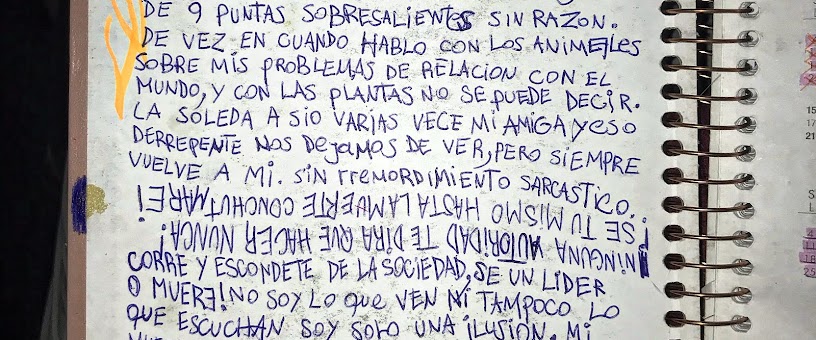 DE 9 PUNTAS SOBRESALIENTES SIN RAZON.
DE VEZ EN CUANDO HABLO CON LOS ANIMELES
SOBRE MIS PROBLEMAS DE RELACION CON EL
MUNDO, Y CON LAS PLANTAS NO SE PUEDE DECIR.
LA SOLEDA A SIO VARIAS VECE MI AMIGA Y ESO
DERREPENTE NOS DEJAMOS DE VER, PERO SIEMPRE
VUELVE A MI. SIN RREMORDIMIENTO SARCASTICO.
¡SE TU MISMO HASTA LA MUERTE CONCHUTMARE!
NINGUNA AUTORIDAD TE DIRA QUE HACER NUNCA!
CORRE Y ESCONDETE DE LA SOCIEDAD, SE UN LIDER
O MUERE! NO SOY LO QUE VEN NI TAMPOCO LO
QUE ESCUCHAN SOY SOLO UNA ILUSION. MI
15
17
21
S
L
4
11
18
25